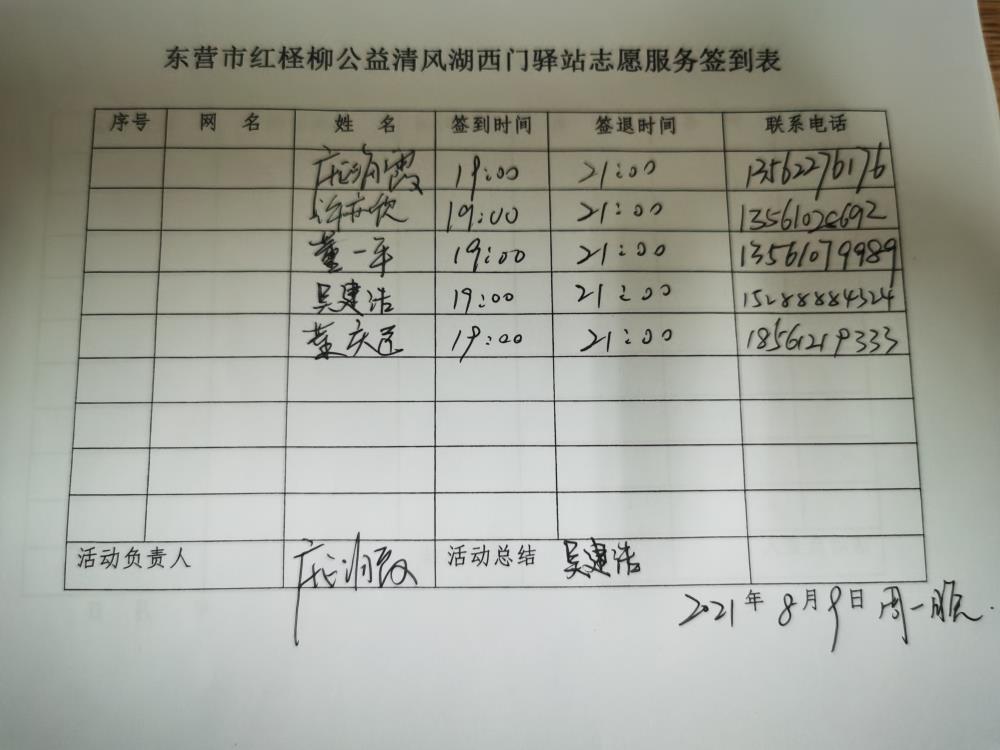 东营市红柽柳公益清风湖西门驿站志愿服务签到表
序号 网 名 姓 名 签到时间 签退时间 联系电话
19:00 21:00 13562276176
19:00 21:00 13561028692
董一平 19:00 21:00 13561079989
吴建浩 19:00 21:00 15288884324
19:00 21:00 18561219333
活动负责人 活动总结 吴建浩
2021年8月9日 周一晚